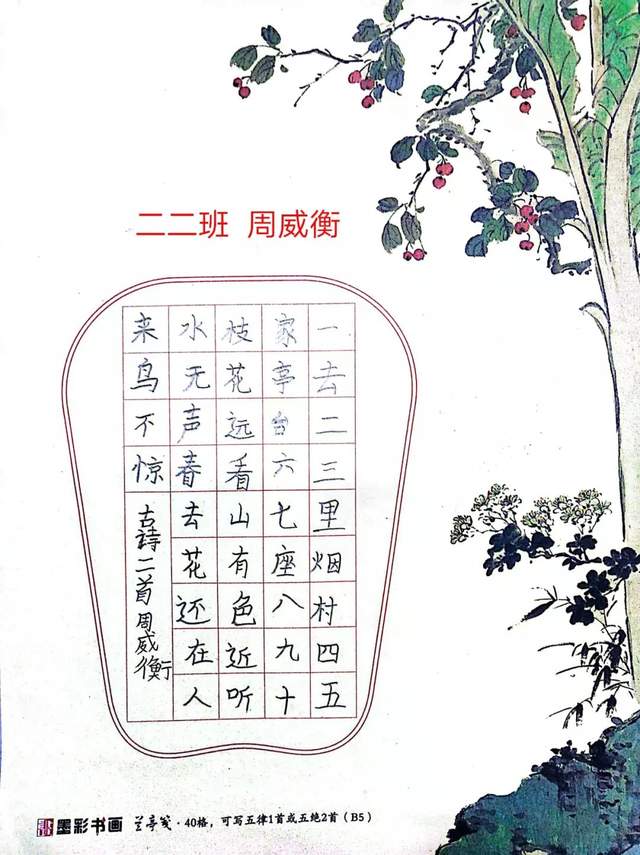 二二班 周威衡
一去二三里烟村四五
家亭台六七座八九十
枝花远看山有色近听
水无声春去花还在人
来鸟不惊
古诗二首周威衡
墨彩书画 兰亭笺·40格，可写五律1首或五绝2首（B5）